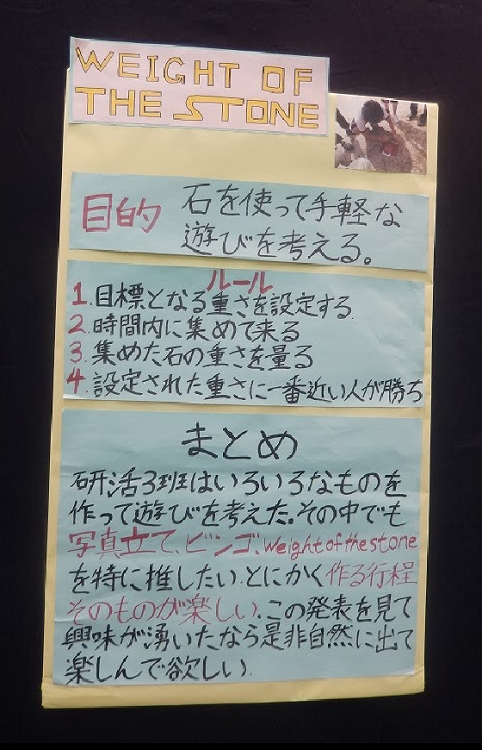 WEIGHT OF
THE STONE
目的 石を使って手軽な
遊びを考える。
ルール
1.目標となる重さを設定する
2.時間内に集めて来る
3.集めた石の重さを量る
4.設定された重さに一番近い人が勝ち
まとめ
研活3班はいろいろなものを
作って遊びを考えた。その中でも
写真立て、ビンゴ、Weight of the stone
を特に推したい.とにかく作る行程
そのものが楽しい.この発表を見て
興味が湧いたなら是非自然に出て
楽しんで欲しい.